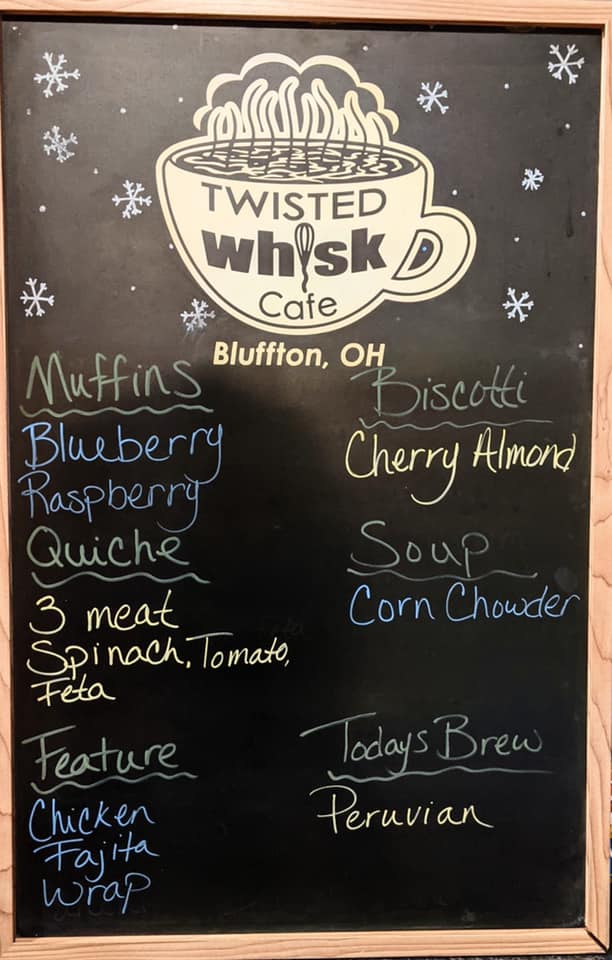 TWISTED
whisk
Cafe
Bluffton, OH
Muffins
Blueberry
Raspberry
Quiche
3 meat
Spinach, Tomato,
Feta
Feature
Chicken
Fajita
Wrap
Biscotti
Cherry Almond
Soup
Corn Chowder
Todays Brew
Peruvian